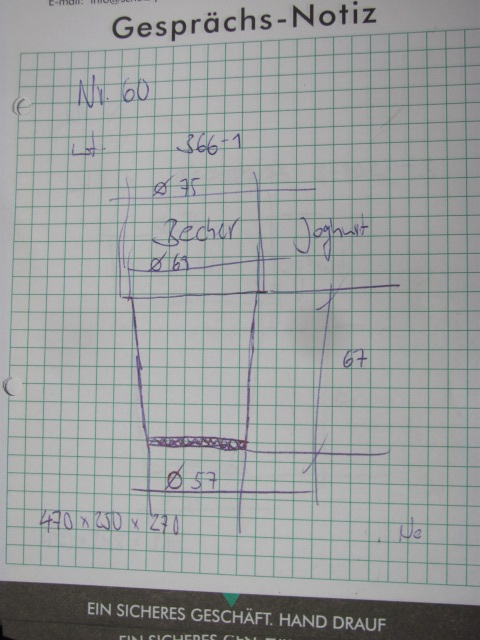 E-mail:
Gesprächs-Notiz
Nr. 60
366-1
Ø 75
Becher Joghurt
Ø 69
67
Ø 57
470 x 250 x 270
EIN SICHERES GESCHÄFT. HAND DRAUF